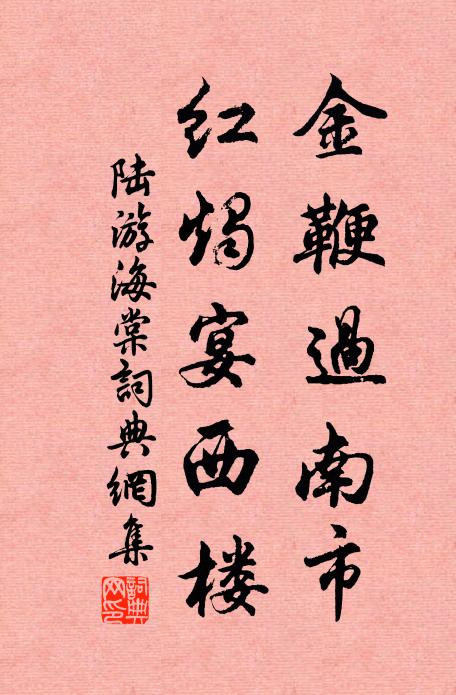 金鞭過南市
红烛宴西楼
陆游海棠詞典網集
詞典网印